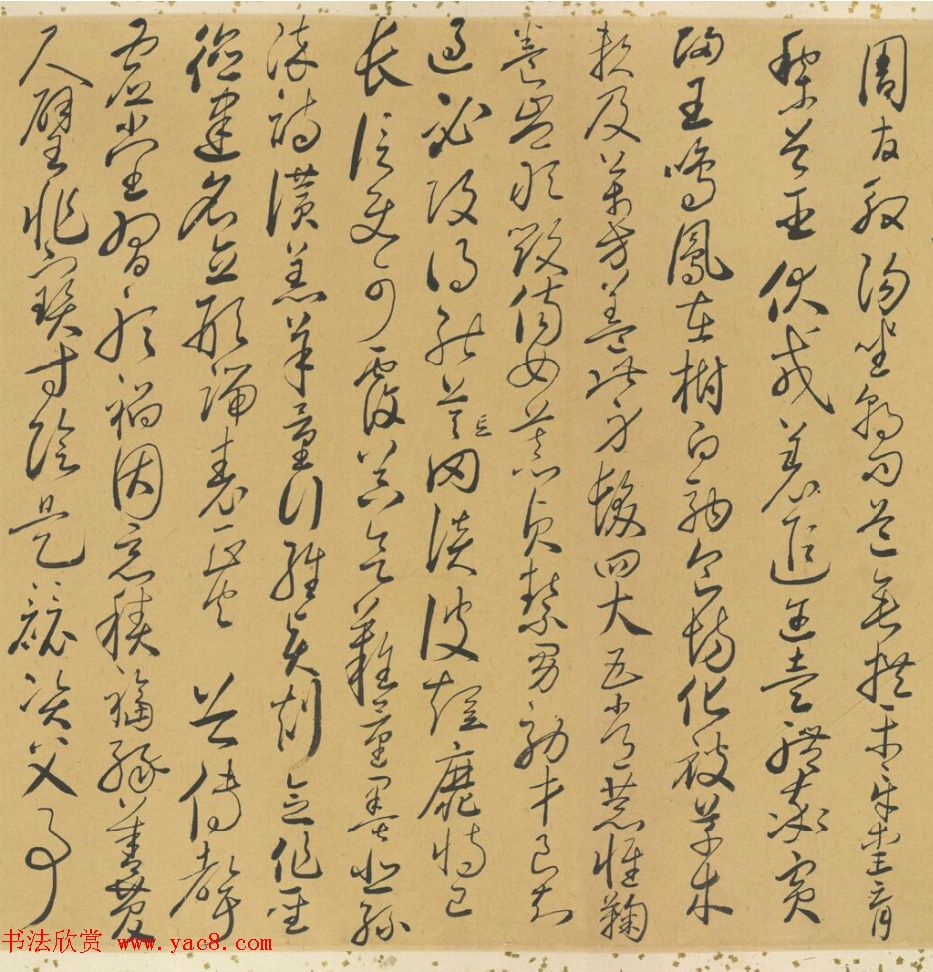 周發殷湯坐朝問道垂拱平章愛育
黎首臣伏戎羌遐邇壹體率賓
歸王鳴鳳在樹白駒食場化被草木
賴及萬方蓋此身髮四大五常恭惟鞠
養豈敢毀傷女慕貞絜男效才良知
過必改得能莫忘罔談彼短靡恃己
長信使可覆器欲難量墨悲絲
染詩讚羔羊景行維賢剋念作聖
德建名立形端表正空谷傳聲
虛堂習聽禍因惡積福緣善慶
尺璧非寶寸陰是競資父事
书法欣赏 www.yac8.com